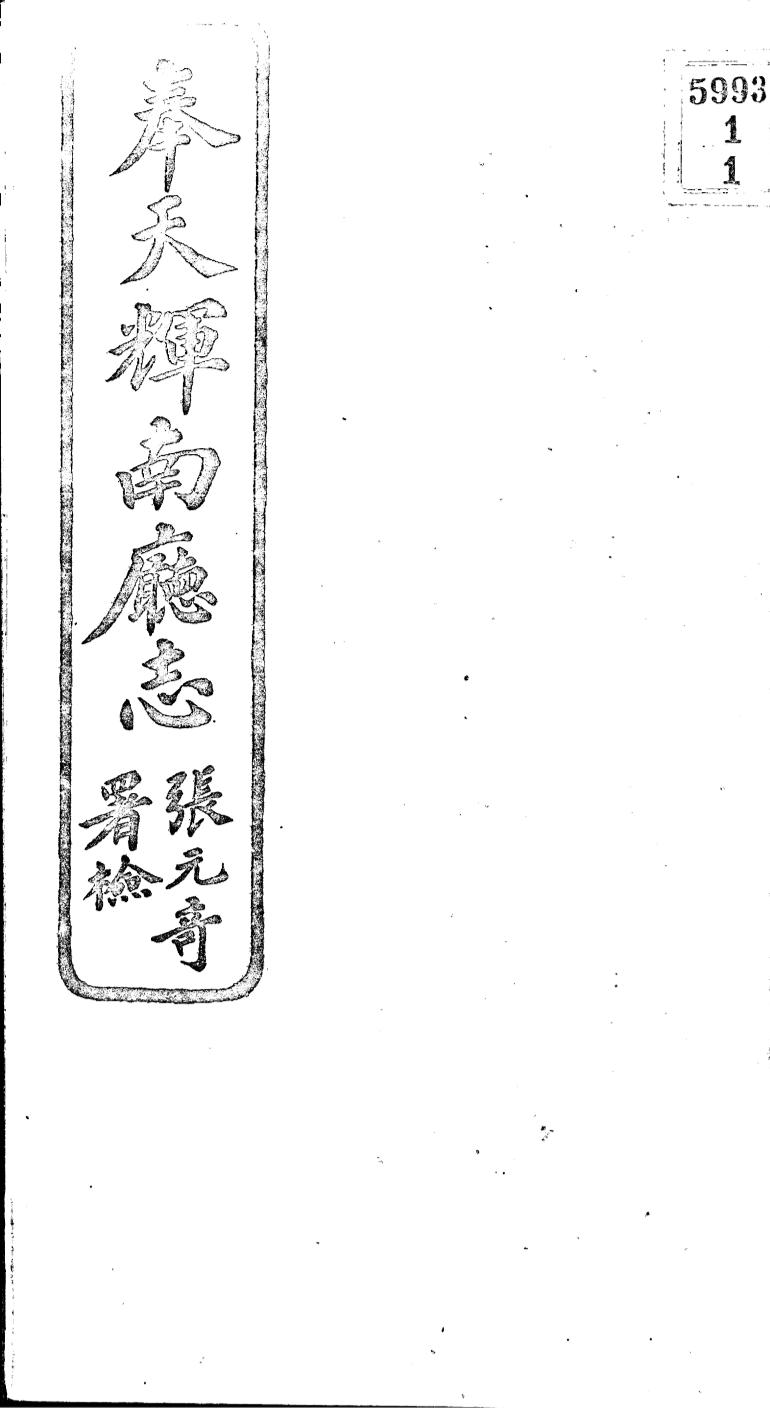 奉天輝南廳志
張元奇
署檢
5993
1
1